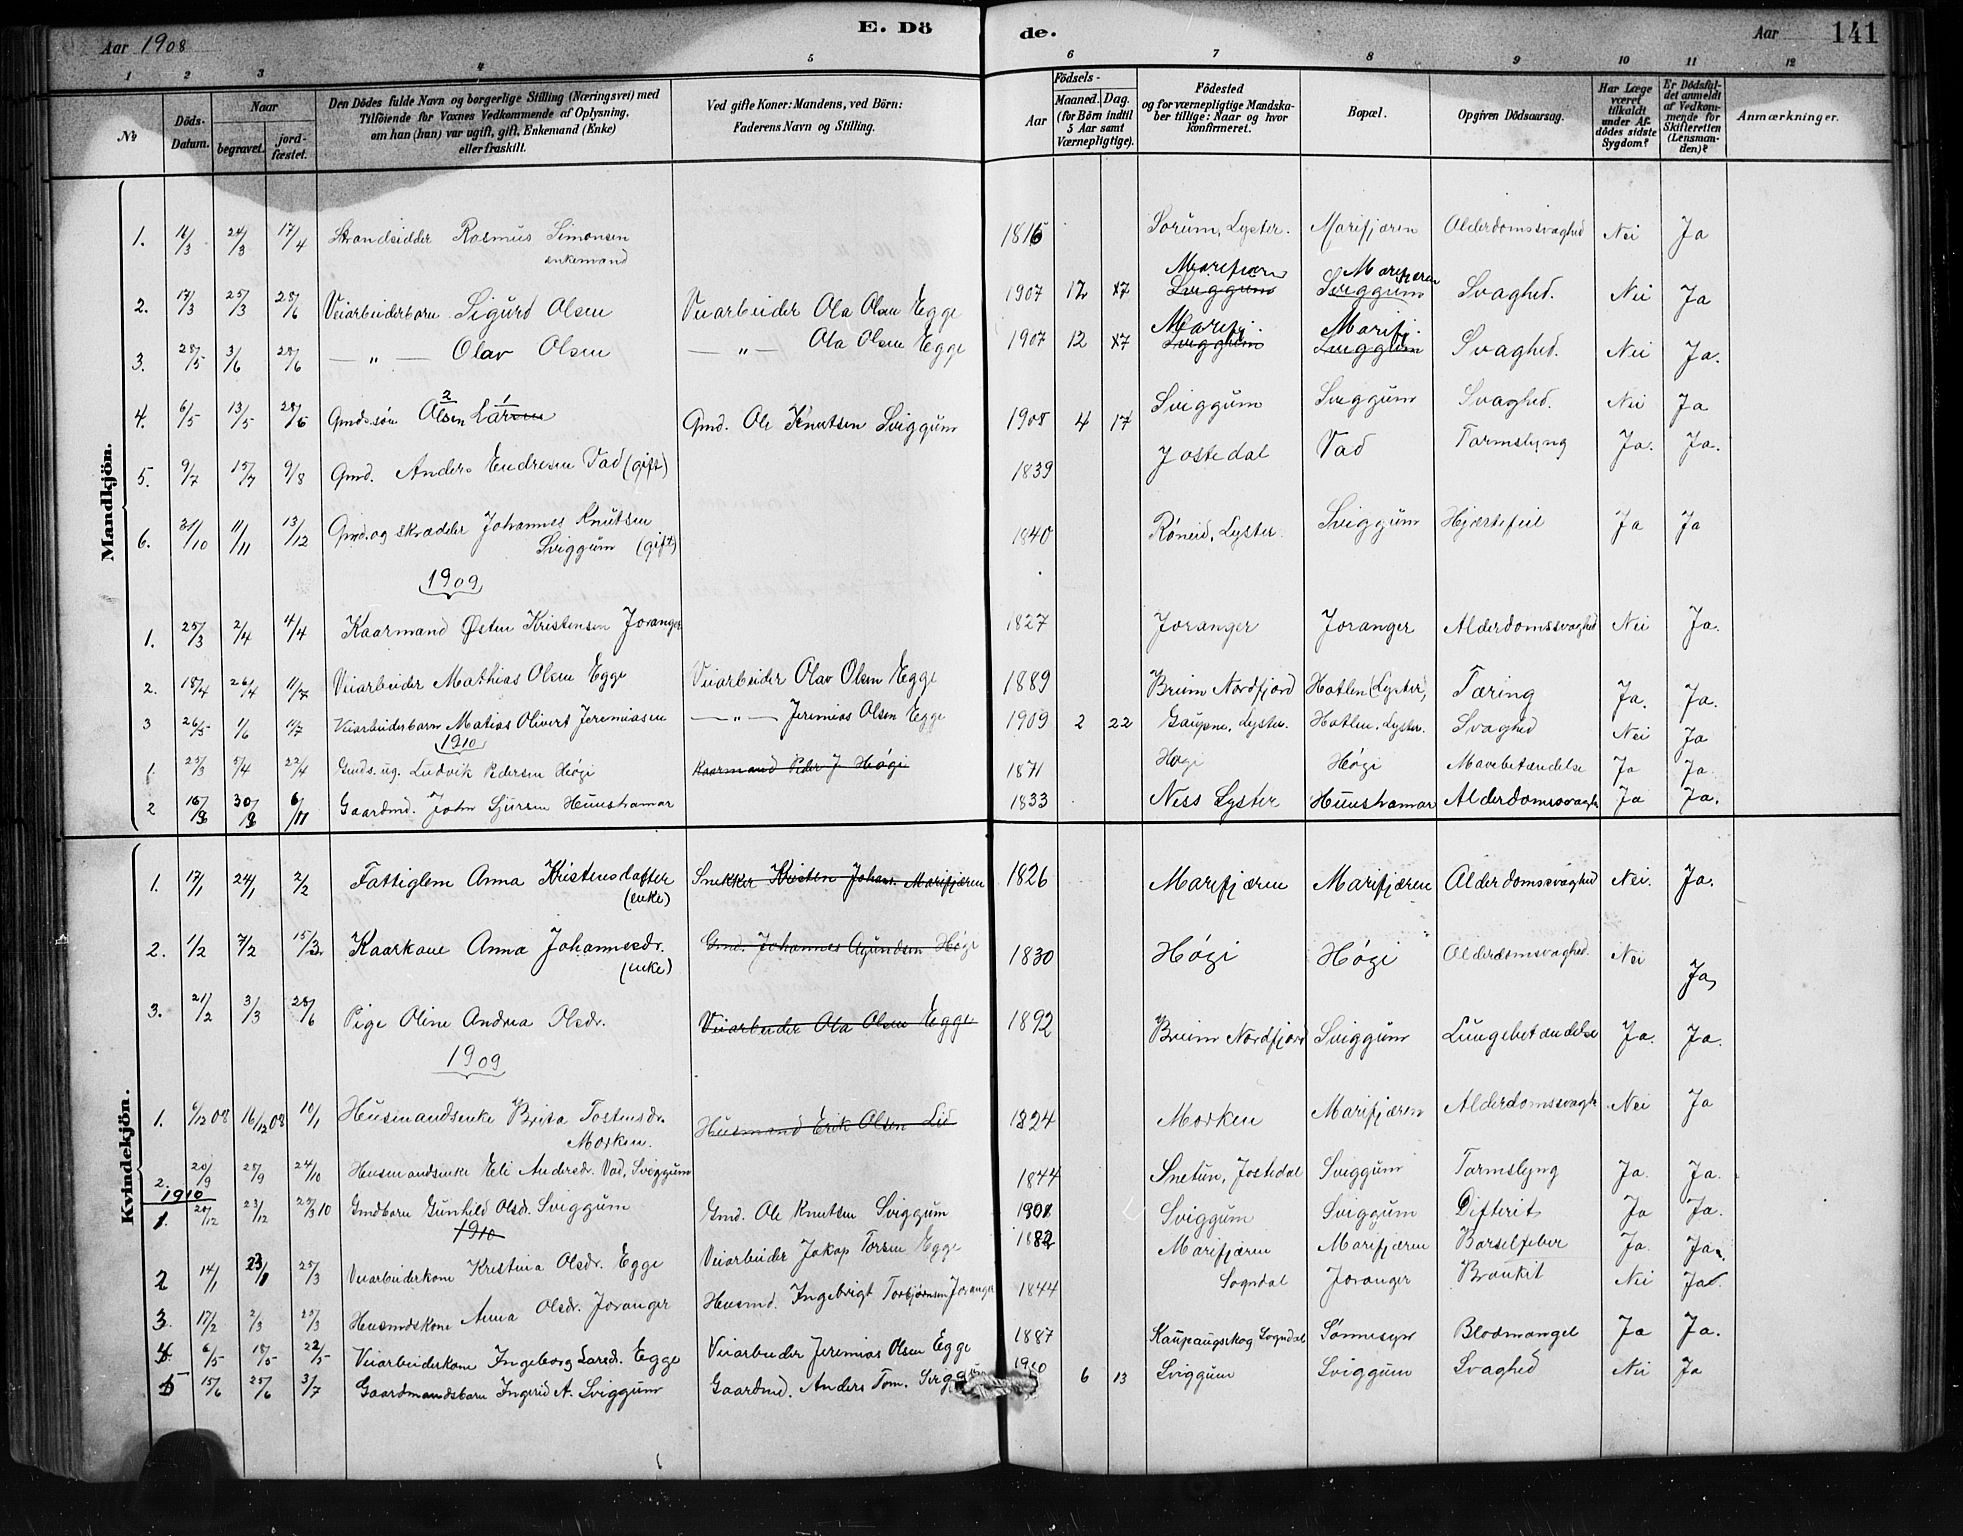 Aar 1908 E. Dö de. Aar 141
1 2 3 4 5 6 7 8 9 10 11 12
№
Döds-Datum.
Naar
begravet. jord-fæstet.
Den Dödes fulde Navn og borgerlige Stilling (Næringsvei) med
Tilföiende for Voxnes Vedkommende af Oplysning,
om han (hun) var ugift, gift, Enkemand (Enke)
eller fraskilt.
Ved gifte Koner: Mandens, ved Börn:
Faderens Navn og Stilling.
Födsels-
Aar Maaned. Dag.
(for Börn indtil
5 Aar samt
Værnepligtige).
Födested
og for værnepligtige Mandska-
ber tillige: Naar og hvor
konfirmeret.
Bopæl.
Opgiven Dödsaarsag.
Har Læge
været
tilkaldt
under Af-
dödes sidste
Sygdom?
Er Dödsfal-
det anmeldt
af Vedkom-
mende for
Skifteretten
(Lensman-
den)?
Anmærkninger.
Mandkjön.
1. 16/3 24/3 17/4 Strandsidder Rasmus Simonsen 1816 Sorum, Lyster. Marifjæren Alderdomssvaghed Nei Ja
enkemand
Marifjæren Marifjæren
2. 17/3 25/3 28/6 Veiarbeiderbarn Sigurd Olsen Veiarbeider Ola Olsen Egge 1907 12 27 Sviggum Sviggum Svaghed. Nei Ja
Marifj. Marifj.
3. 28/5 3/6 28/6 — „ — Olav Olsen — „ — Ola Olsen Egge 1907 12 27 Sviggum Sviggum Svaghed. Nei Ja.
4. 6/5 13/5 28/6 Gmds.søn Olsen Larsen Gmd. Ole Knutsen Sviggum 1908 4 17 Sviggum Sviggum Svaghed. Nei Ja
5. 9/7 15/7 9/8 Gmd. Anders Endresen Vad (gift) 1839 Jostedal Vad Tarmslyng Ja. Ja.
6. 31/10 11/11 13/12 Gmd. og skrædder Johannes Knutsen 1840 Røneid, Lyster. Sviggum Hjertefeil Ja Ja
Sviggum (gift)
1909
1. 25/3 2/4 4/4 Kaarmand Østen Kristensen Joranger 1827 Joranger Joranger Alderdomssvaghed Nei Ja.
2. 18/4 26/4 11/7 Veiarbeider Mathias Olsen Egge Veiarbeider Olav Olsen Egge 1889 Breim Nordfjord Hatlen (Lyster) Tæring Ja. Ja.
3 26/5 1/6 11/7 Veiarbeiderbarn Matias Olivert Jeremiasen — „ — Jeremias Olsen Egge 1909 2 22 Gaupne, Lyster. Hatlen, Lyster. Svaghed Nei Ja
1910
1. 25/3 5/4 22/4 Gmds. ug. Ludvik Pedersen Høgi Kaarmand Peder J Høgi 1871 Høgi Høgi Mavebetændelse Ja Ja.
2 30/ 6/11 Gaardmd. John Sjursen Huushamar 1833 Ness Lyster Huushamar Alderdomssvagh Ja Ja.
Kvindekjön.
1. 17/1 24/1 2/2 Fattiglem Anna Kristensdatter Snekker Kristen Johans. Marifjæren 1826 Marifjæren Marifjæren Alderdomssvaghed Nei. Ja.
(enke)
2. 1/2 7/2 15/3 Kaarkone Anna Johannesdr. Gmd. Johannes Agundsen Høgi 1830 Høgi Høgi Alderdomsvaghed. Nei Ja
(enke)
3. 21/2 3/3 28/6 Pige Oline Andrea Olsdr. Veiarbeider Ola Olsen Egge 1892 Breim Nordfjord Sviggum Lungebetændelse Ja. Ja.
1909
1. 6/12 08 16/12 08 10/1 Husmandsenke Brita Tostensdr. Husmand Erik Olsen Lid 1824 Morken Marifjæren Alderdomssvagh Nei Ja
Morken.
2. 20/9 28/9 24/10 Husmandsenke Eli Andersdr. Vad, Sviggum 1844 Snetun, Jostedal Sviggum Tarmslyng Ja. Ja.
1910
1. 20/12 23/12 27/3 10 Gmdbarn Gunhild Olsdr. Sviggum Gmd. Ole Knutsen Sviggum 1901 Sviggum Sviggum Difterit Ja Ja.
1910
2 14/1 23/1 25/3 Veiarbeiderkone Kristina Olsdr. Egge Veiarbeider Jakop Torsen Egge 1882 Marifjæren Marifjæren Barselfeber Ja. Ja.
3. 17/2 2/3 25/3 Husmdskone Anna Olsdr. Joranger Husmd. Ingebrigt Torbjørnsen Joranger 1844 Sogndal Joranger Bronkit Nei Ja
4 6/5 18/5 22/5 Veiarbeiderkone Ingeborg Larsdr. Egge Veiarbeider Jeremias Olsen Egge 1887 Kaupangskog Sogndal Sønnesyn Blodmangel Ja Ja.
5 15/6 25/6 3/7 Gaardmandsbarn Ingerid A. Sviggum Gaardmd. Anders Tom. 1910 6 13 Sviggum Sviggum Svaghed Nei Ja